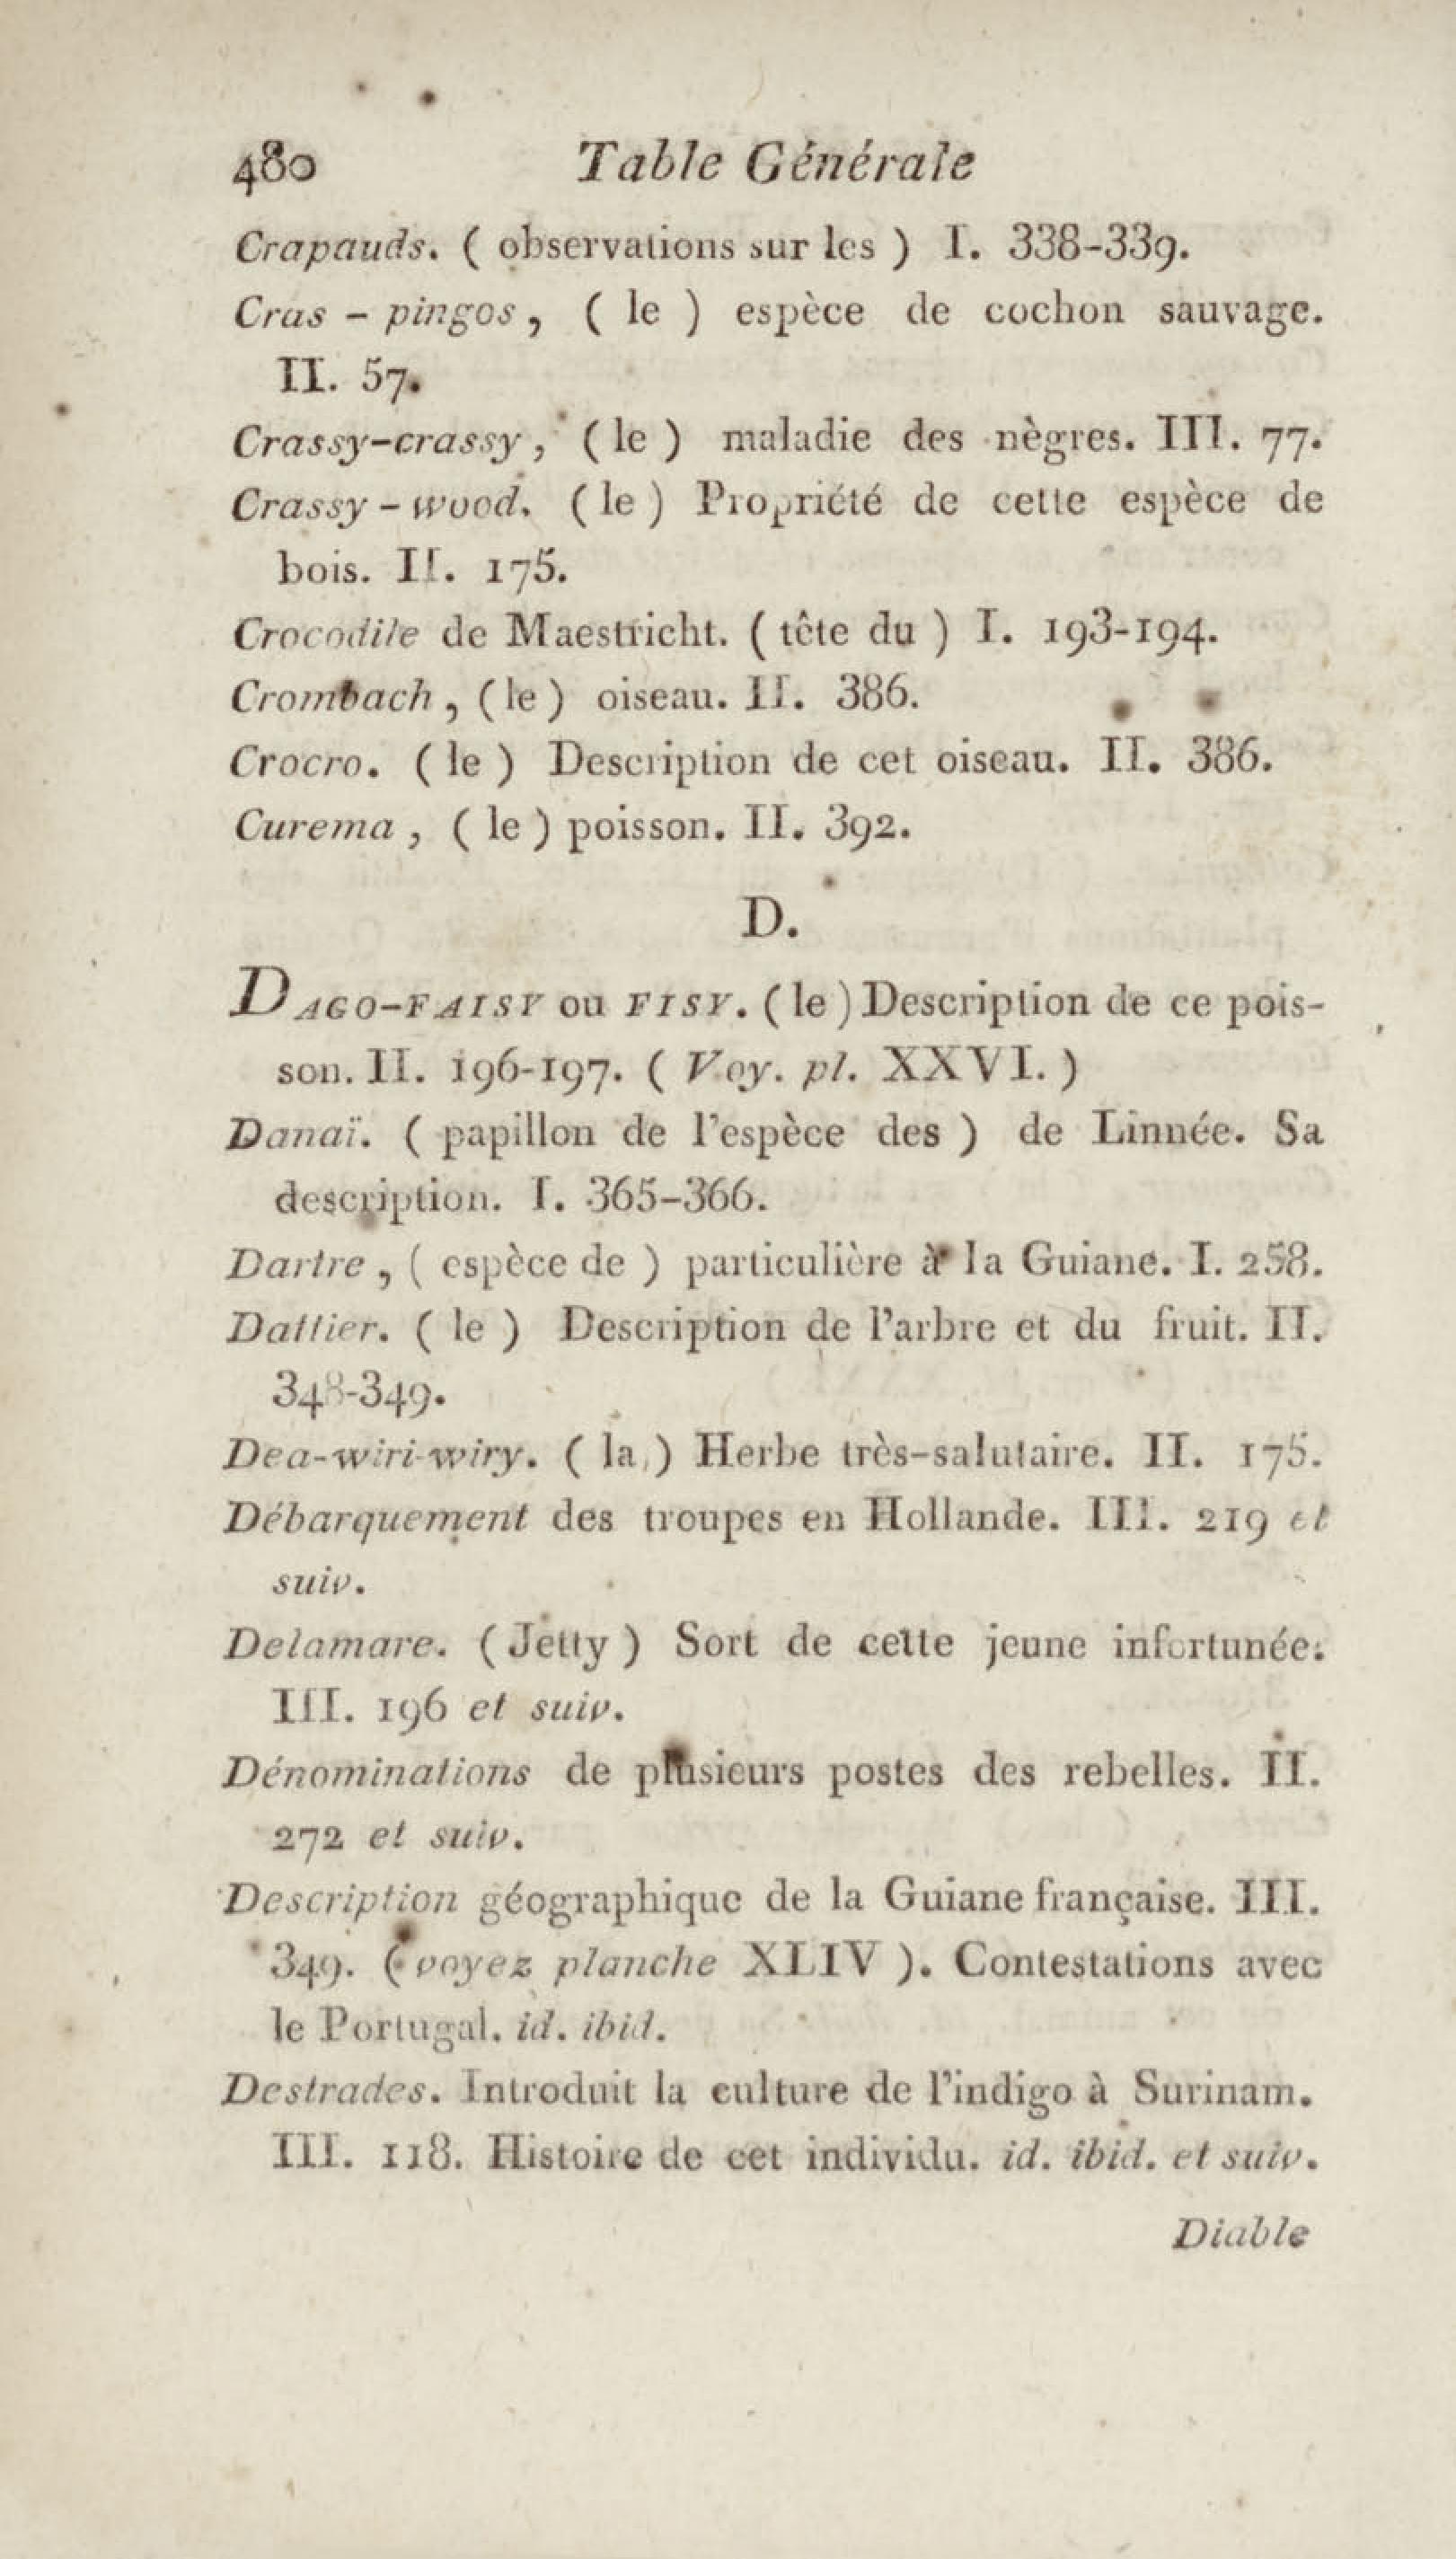 480 Table Générale
Crapauds. ( observations sur les ) I. 338-339.
Cras - pingos, ( le ) espèce de cochon sauvage.
II. 57.
Crassy-crassy, ( le ) maladie des nègres. III. 77.
Crassy - wood. ( le ) Propriété de cette espèce de
bois. II. 175.
Crocodile de Maestricht. ( tête du ) I. 193-194.
Crombach, ( le ) oiseau. II. 386.
Crocro. ( le ) Description de cet oiseau. II. 386.
Curema, ( le ) poisson. II. 392.
D.
DAGO-FAISY ou FISY. ( le ) Description de ce pois-
son. II. 196-197. ( Voy. pl. XXVI. )
Danaï. ( papillon de l'espèce des ) de Linnée. Sa
description. I. 365-366.
Dartre, ( espèce de ) particulière à la Guiane. I. 258.
Dattier. ( le ) Description de l'arbre et du fruit. II.
348-349.
Dea-wiri-wiry. ( la ) Herbe très-salutaire. II. 175.
Débarquement des troupes en Hollande. III. 219 et
suiv.
Delamare. ( Jetty ) Sort de cette jeune infortunée.
III. 196 et suiv.
Dénominations de plusieurs postes des rebelles. II.
272 et suiv.
Description géographique de la Guiane française. III.
349. ( voyez planche XLIV ). Contestations avec
le Portugal. id. ibid.
Destrades. Introduit la culture de l'indigo à Surinam.
III. 118. Histoire de cet individu. id. ibid. et suiv.
Diable